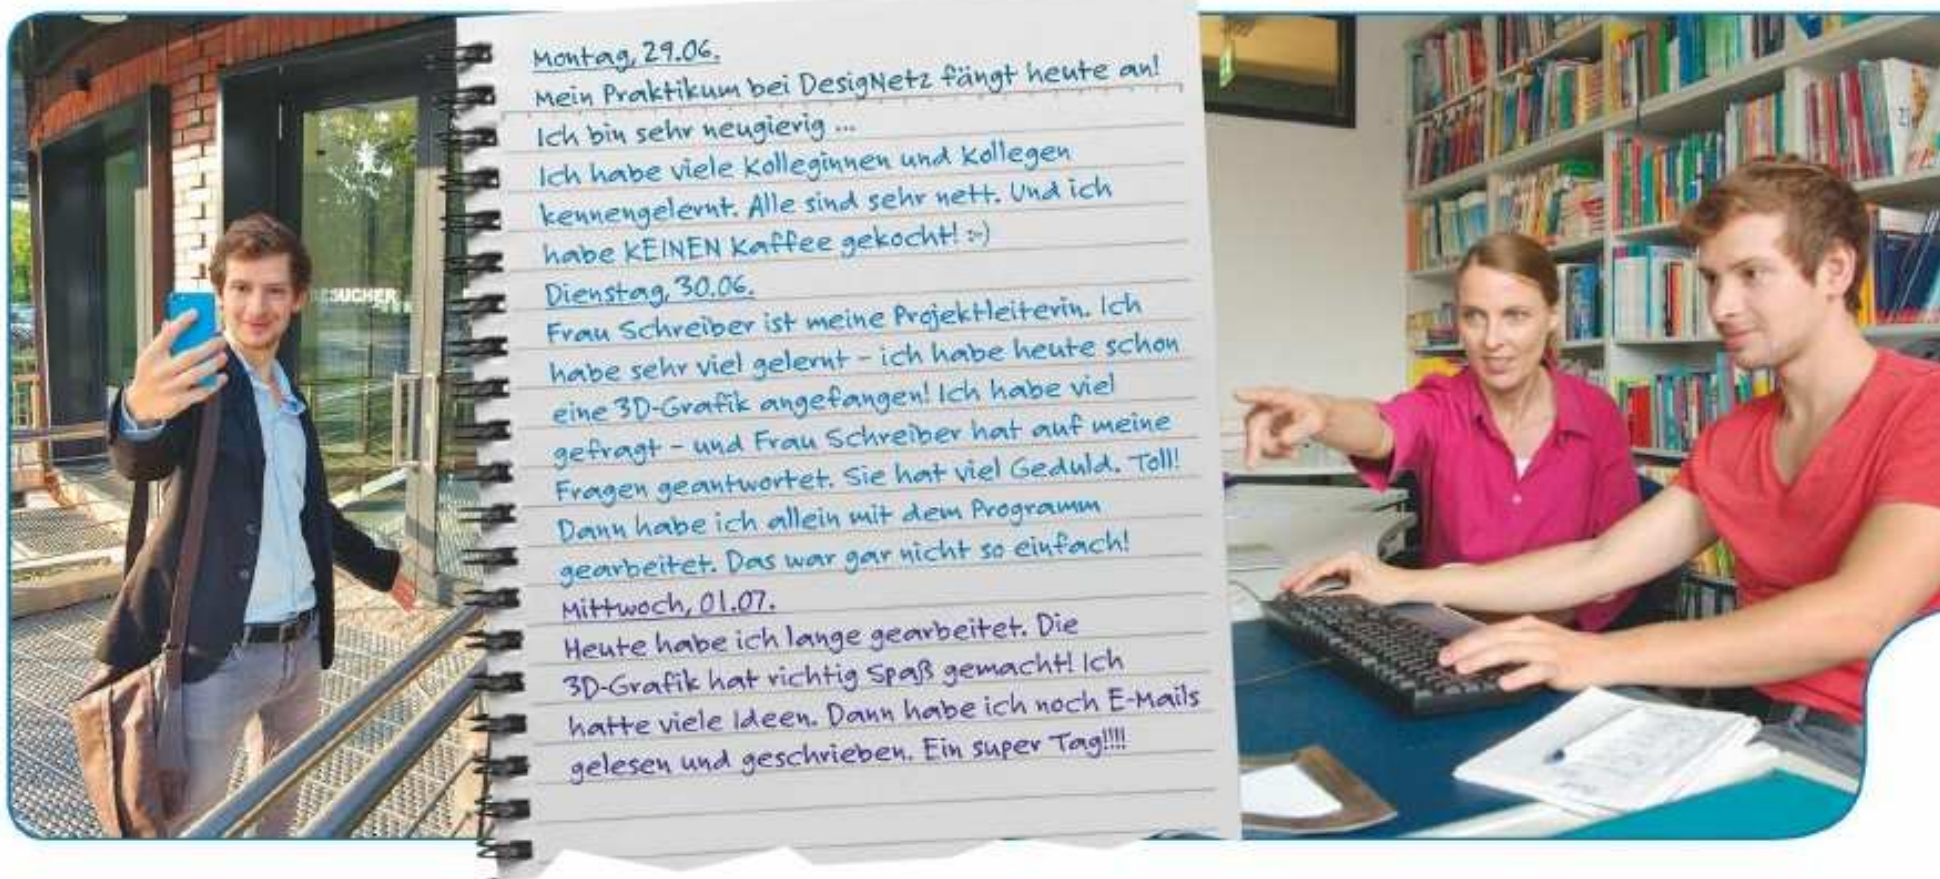 BESUCHER
Montag, 29.06.
Mein Praktikum bei DesigNetz fängt heute an!
Ich bin sehr neugierig ...
Ich habe viele Kolleginnen und Kollegen
kennengelernt. Alle sind sehr nett. Und ich
habe KEINEN Kaffee gekocht! :-)
Dienstag, 30.06.
Frau Schreiber ist meine Projektleiterin. Ich
habe sehr viel gelernt – ich habe heute schon
eine 3D-Grafik angefangen! Ich habe viel
gefragt – und Frau Schreiber hat auf meine
Fragen geantwortet. Sie hat viel Geduld. Toll!
Dann habe ich allein mit dem Programm
gearbeitet. Das war gar nicht so einfach!
Mittwoch, 01.07.
Heute habe ich lange gearbeitet. Die
3D-Grafik hat richtig Spaß gemacht! Ich
hatte viele Ideen. Dann habe ich noch E-Mails
gelesen und geschrieben. Ein super Tag!!!!